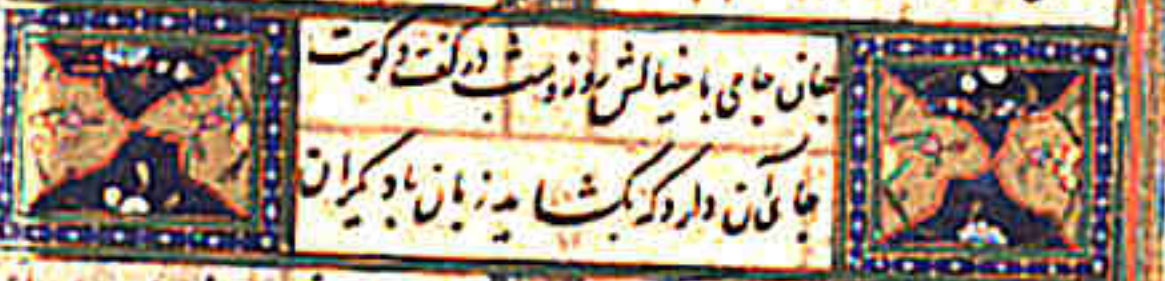 جان جامی با خیالش روز و شب در گفت و گوست
جای آن دارد که نگشاید زبان با دیگران